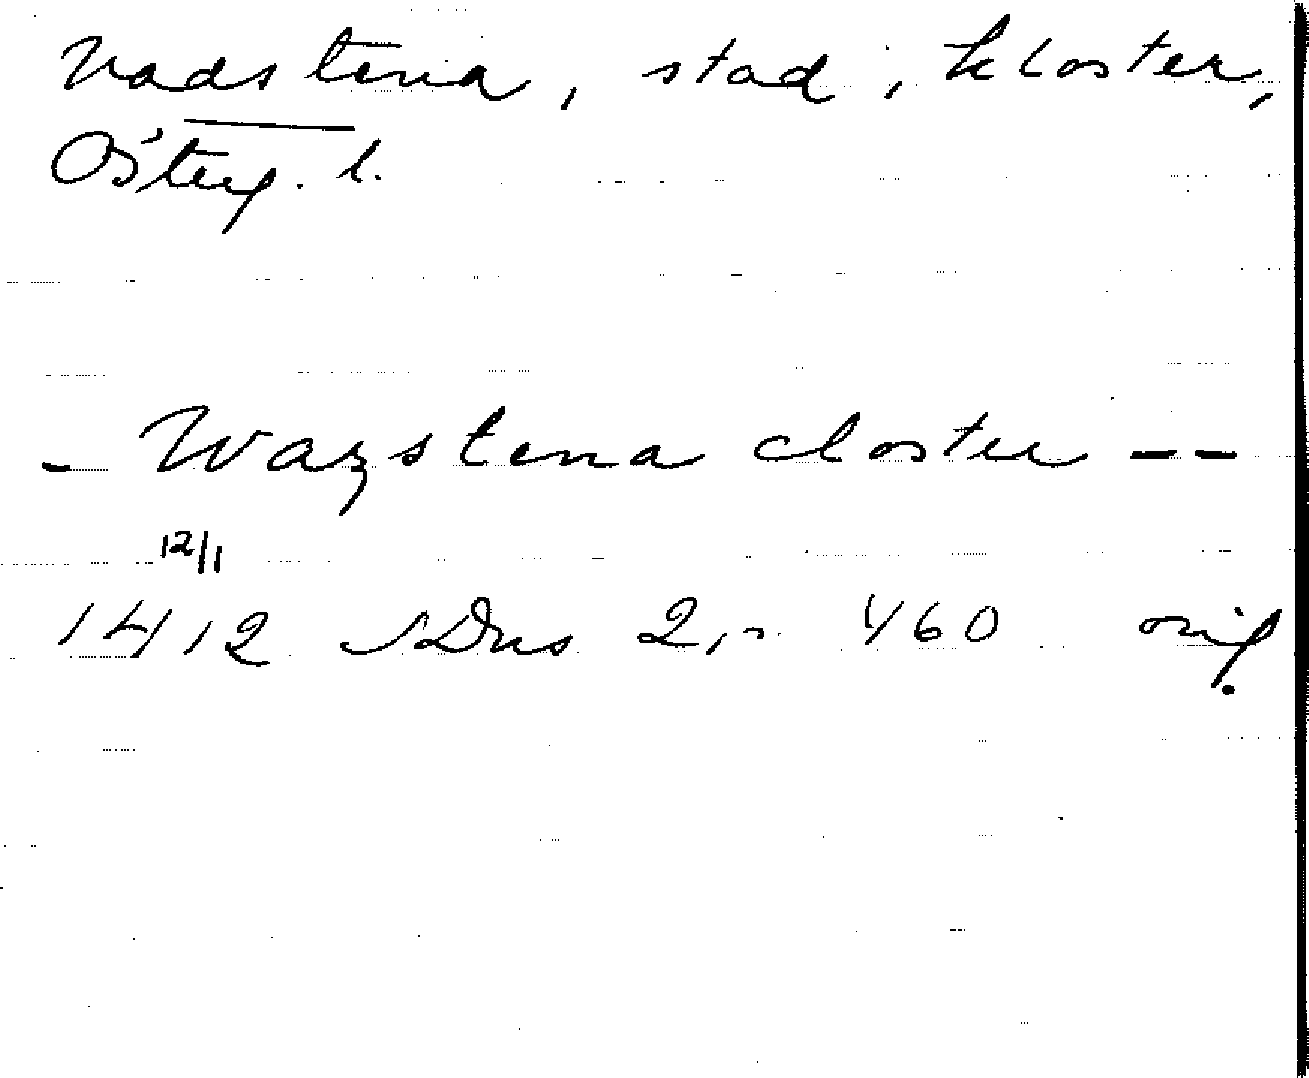 Vadstena, stad, kloster,
Österg. l.
- Wazstena closter --
12/1
1412 SDns 2, 460 orig.